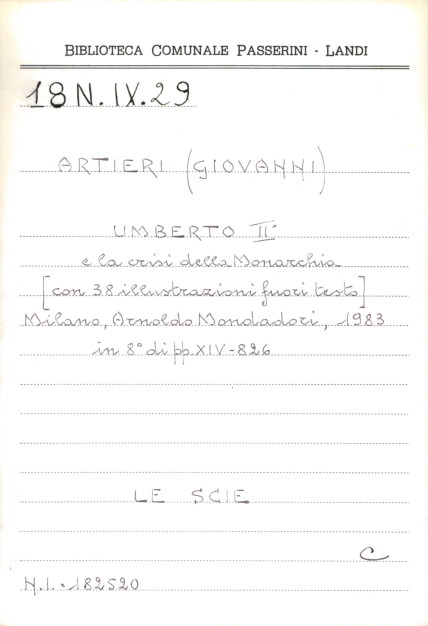 BIBLIOTECA COMUNALE PASSERINI - LANDI
18 N. IX. 29
ARTIERI (GIOVANNI)
UMBERTO II°
e la crisi della Monarchia
[con 38 illustrazioni fuori testo]
Milano, Arnoldo Mondadori, 1983
in 8° di pp. XIV-826
LE SCIE
C
N.I. = 182520